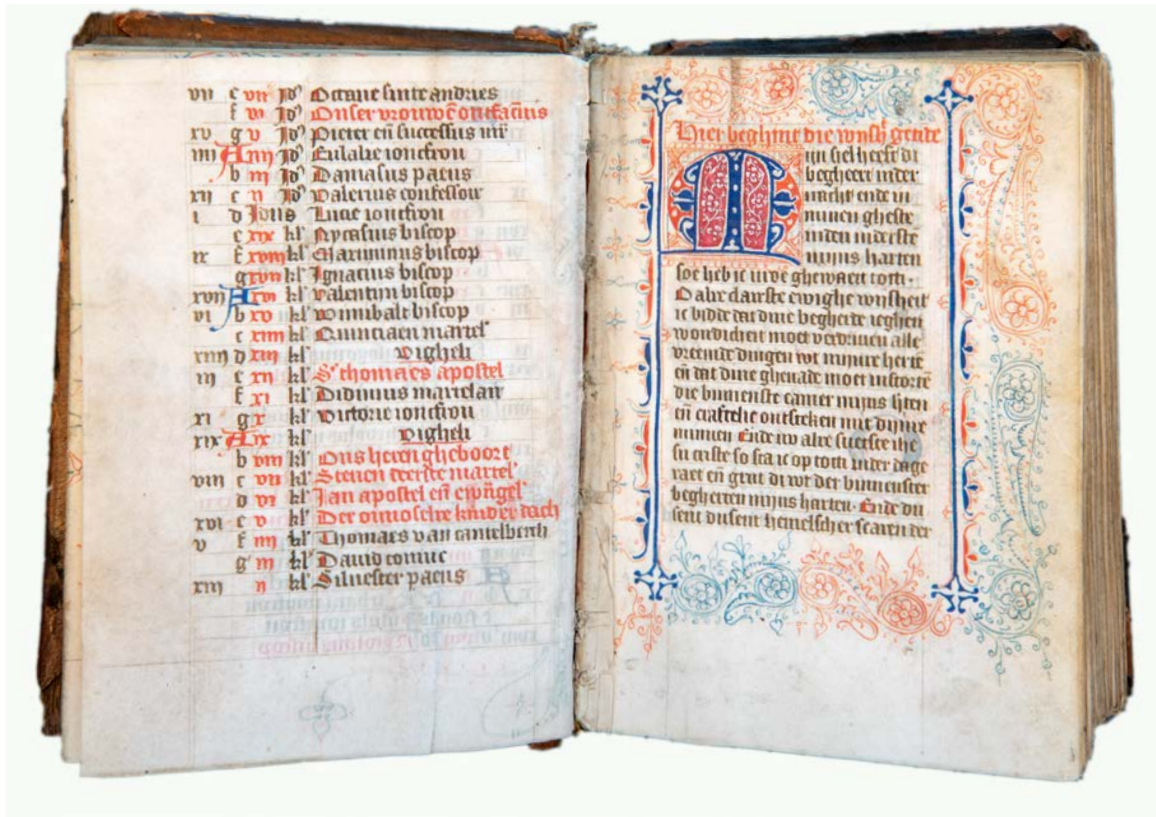 vii e vii Jdꝰ Octaue sinte andries
f vi Jdꝰ Onser vrouwē ontfaⁿnis
xv g v Jdꝰ Pieter eñ successus mr̄
iiij A iiij Jdꝰ Eulalie ioncfrou
b iij Jdꝰ Damasus paeus
xij c ij Jdꝰ Valerius confessoer
i d Idus Lucie ioncfrou
e xix klˀ Nycasius biscop
ix f xviij klˀ Maximinus biscop
g xvij klˀ Ignatius biscop
xvij A xvi klˀ Valentijn biscop
vi b xv klˀ Winnibalt biscop
c xiiij klˀ Quinciaen martelˀ
xiiij d xiij klˀ Vigheli
iij e xij klˀ Sˀ thomaes apostel
f xi klˀ Didimus martelaer
xi g x klˀ Victorie ioncfrou
xix A ix klˀ Vigheli
b viij klˀ Ons heren gheboort
viij c vij klˀ Steuen deerste martelˀ
d vi klˀ Jan apostel eñ ewāgelˀ
xvi e v klˀ Der onnoselre kinder dach
v f iiij klˀ Thomaes van cantelberch
g iij klˀ Dauid coninc
xiij ij klˀ Siluester paeus
Hier beghint die wijsh' getide
Mijn siel heeft di
begheert inder
nacht ende in
minen gheeste
inden inderste
mijns harten
soe heb ic in di ghewaect totti·
O alre claerste ewighe wijsheit
ic bidde dat dine begherde ieghen
wordicheit moet verdriuen alle
vreemde dingen wt mijnre herte
eñ dat dine ghenade moet instortē
die binnenste camer mijns siten
eñ craftelic ontsteken mit dijnre
minnen Ende nv alre suetste ihe
su criste so sta ic op totti inder dage
raet eñ gruet di wt der binnenster
begheerten mijns harten· Ende du
sent dusent hemelscher scaren der